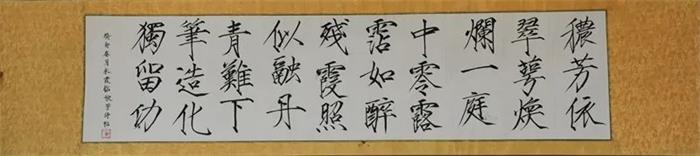 穠芳依
翠萼煥
爛一庭
中零露
霑如醉
殘霞照
似融丹
青難下
筆造化
獨留功
癸卯春月臨穠芳詩帖